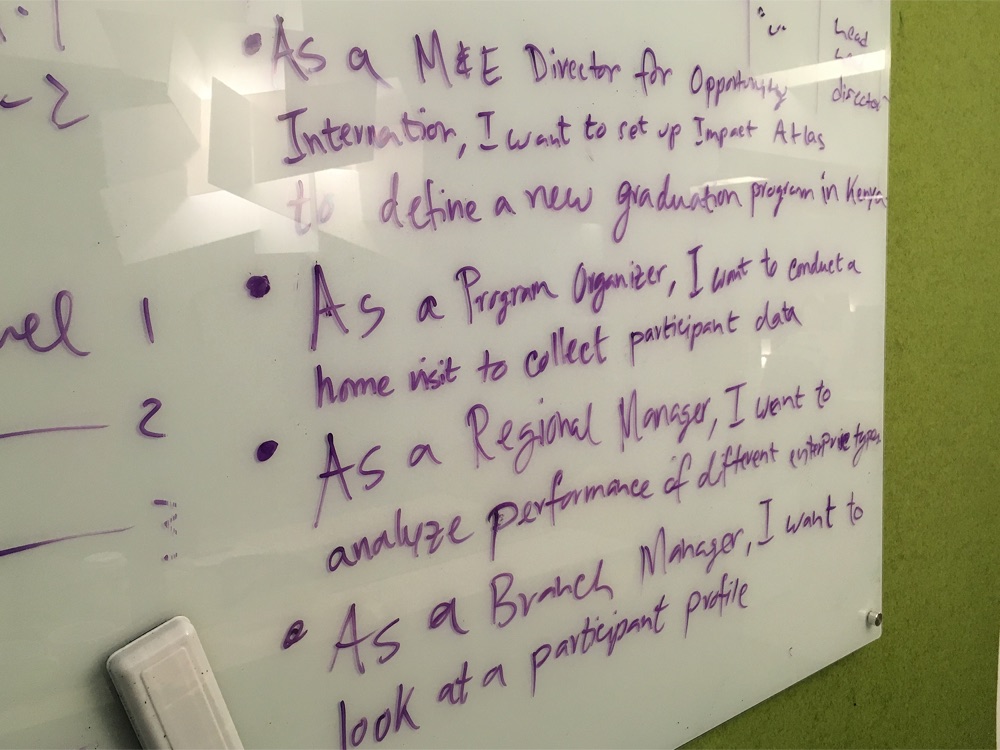 • As a M&E Director for Opportunity
Internation, I want to set up Impact Atlas
to define a new graduation program in Kenya
• As a Program Organizer, I want to conduct a
home visit to collect participant data
• As a Regional Manager, I want to
analyze performance of different enterprise types
• As a Branch Manager, I want to
look at a participant profile
2
1
2
head
director